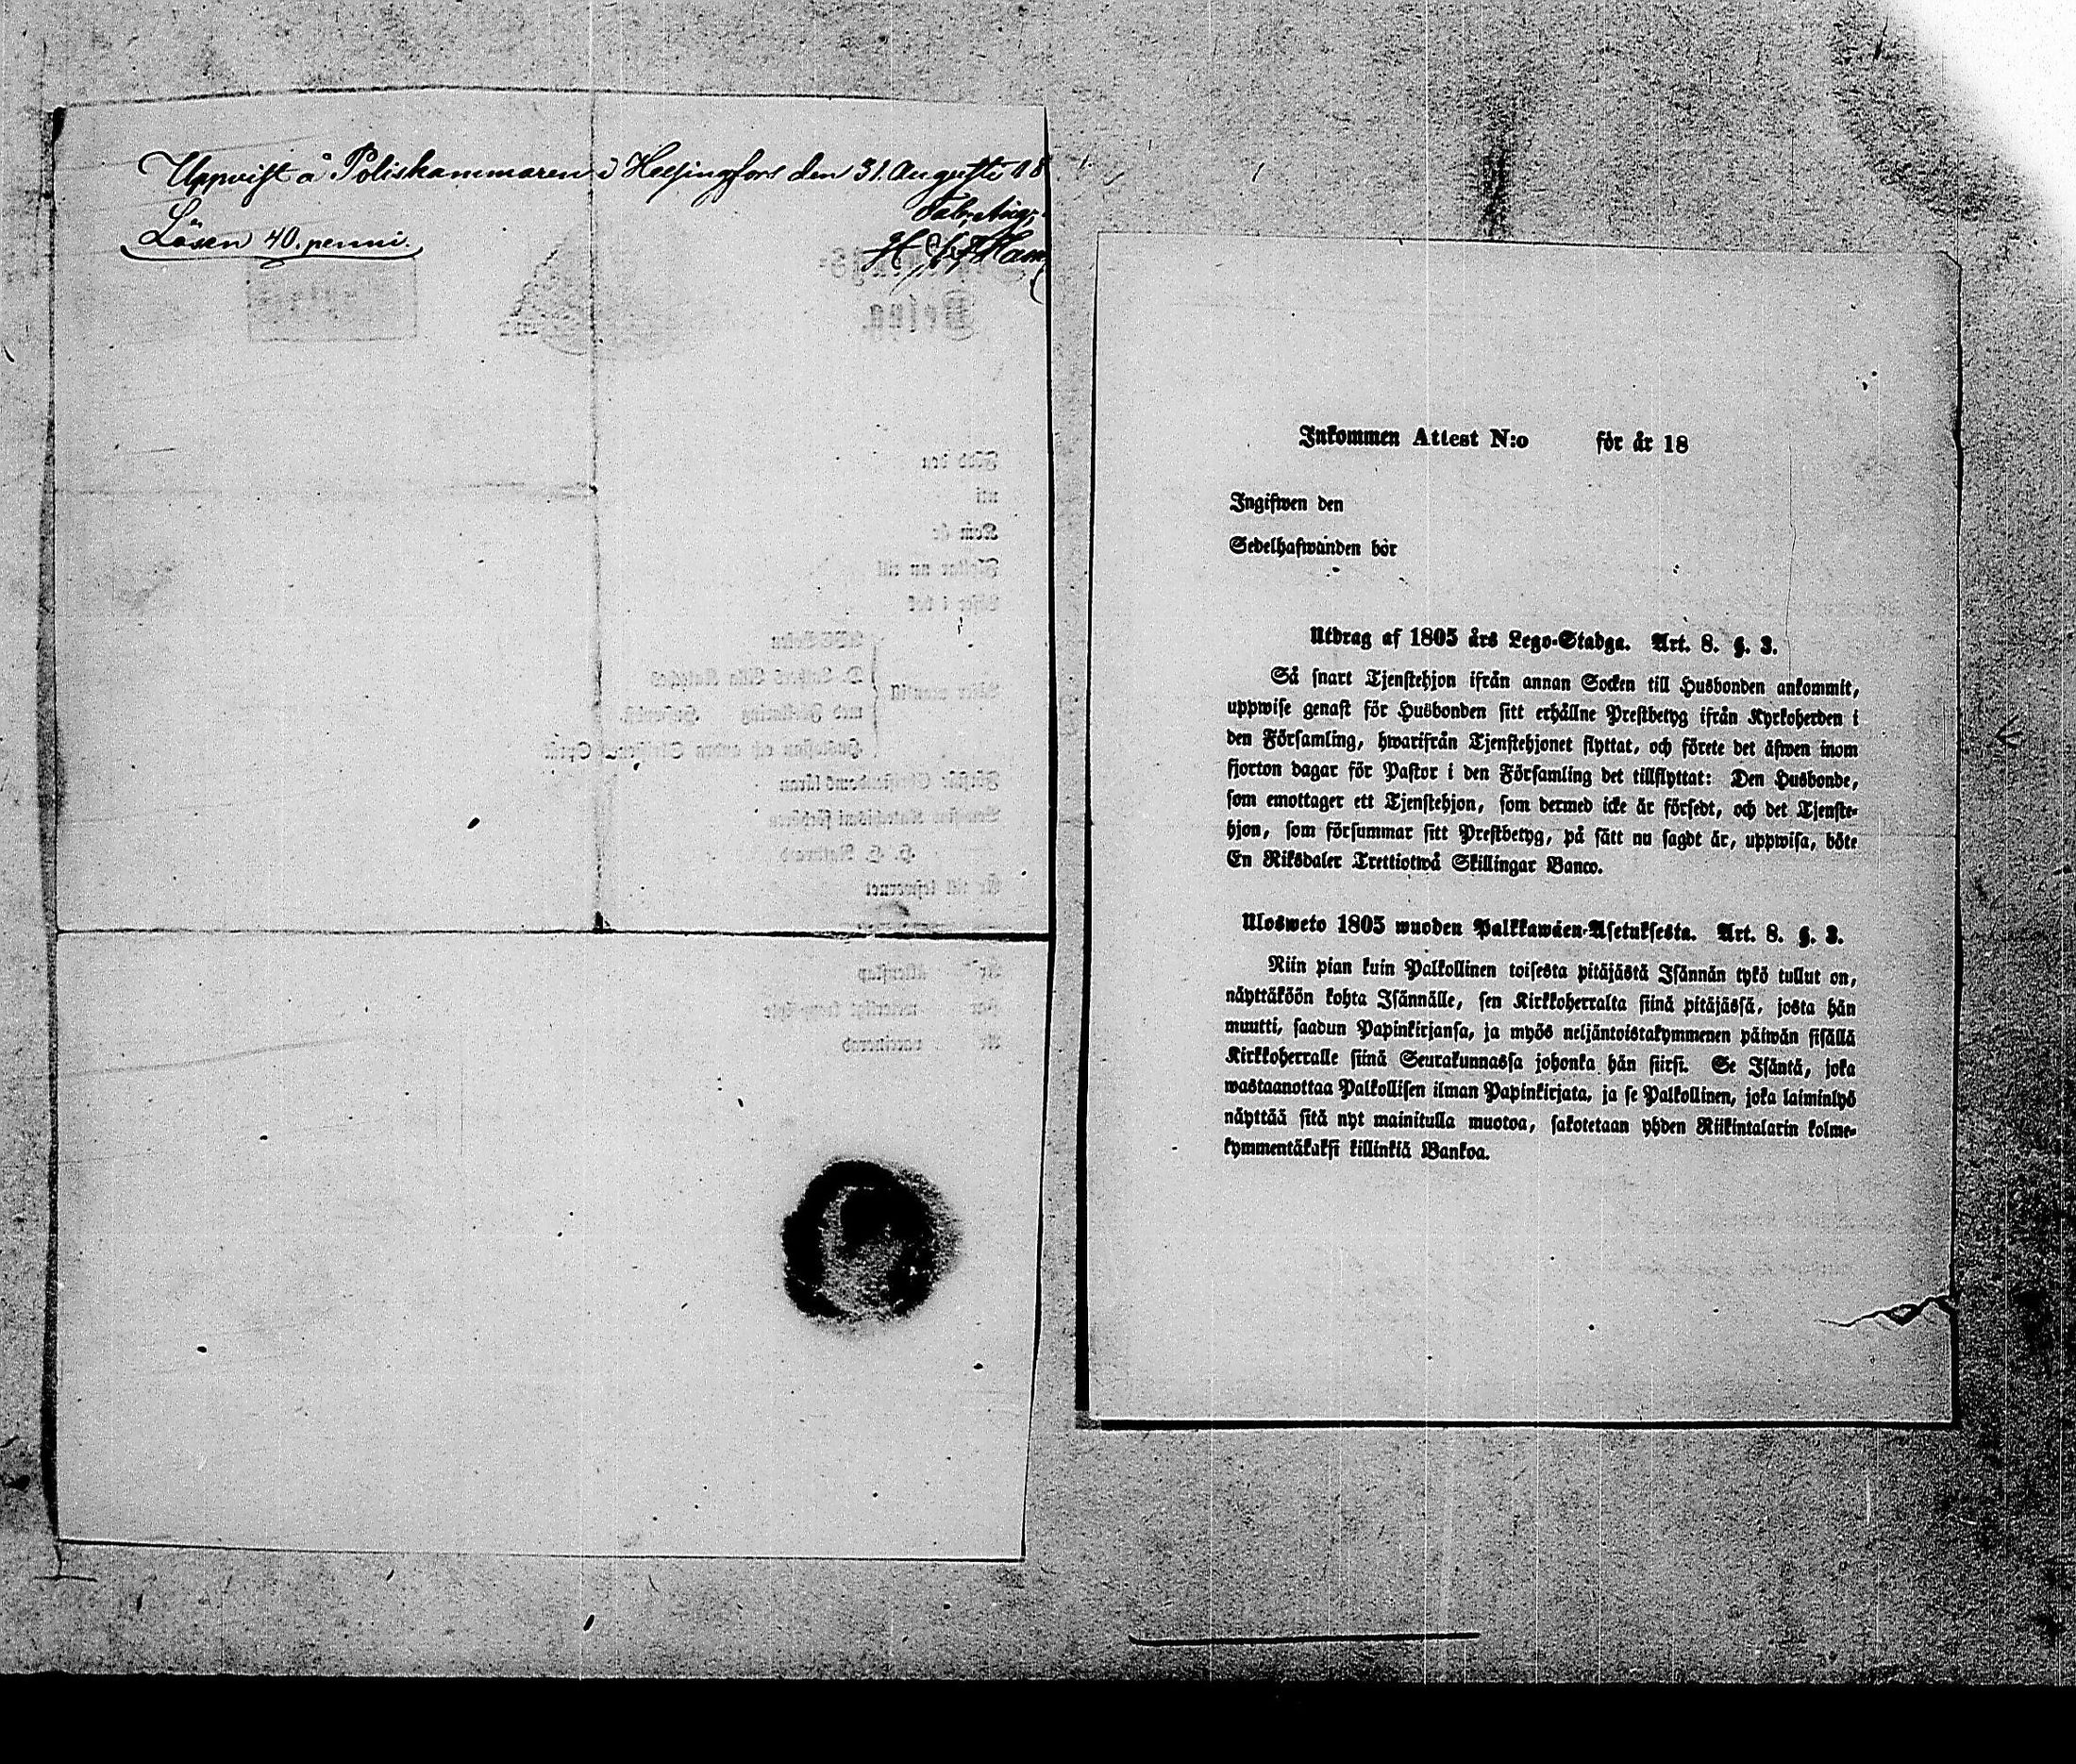 Uppvist å Poliskammaren i Helsingfors den 31. Augusti 18
Lösen 40. penni.
Inkommen Attest N:o för år 18
Ingifwen den
Sedelhafwanden bör
Utdrag af 1805 års Lego-Stadga. Art. 8. §. 3.
Så snart Tjenstehjon ifrån annan Socken till Husbonden ankommit,
uppwise genast för Husbonden sitt erhållne Prestbetyg ifrån Kyrkoherden i
den Församling, hwarifrån Tjenstehjonet flyttat, och förete det äfwen inom
fjorton dagar för Pastor i den Församling det tillflyttat: Den Husbonde,
som emottager ett Tjenstehjon, som dermed icke är försedt, och det Tjenste-
hjon, som försummar sitt Prestbetyg, på sätt nu sagdt är, uppwisa, böte
En Riksdaler Trettiotwå Skillingar Banco.
Ulosweto 1805 wuoden Palkkawäen-Asetuksesta. Art. 8. §. 3.
Niin pian kuin Palkollinen toisesta pitäjästä Isännän tykö tullut on,
näyttäköön kohta Isännälle, sen Kirkkoherralta siinä pitäjässä, josta hän
muutti, saadun Papinkirjansa, ja myös neljäntoistakymmenen päiwän sisällä
Kirkkoherralle siinä Seurakunnassa johonka hän siirsi. Se Isäntä, joka
wastaanottaa Palkollisen ilman Papinkirjata, ja se Palkollinen, joka laiminlyö
näyttää sitä nyt mainitulla muotoa, sakotetaan yhden Riikintalarin kolme-
kymmentäkaksi killinkiä Bankoa.